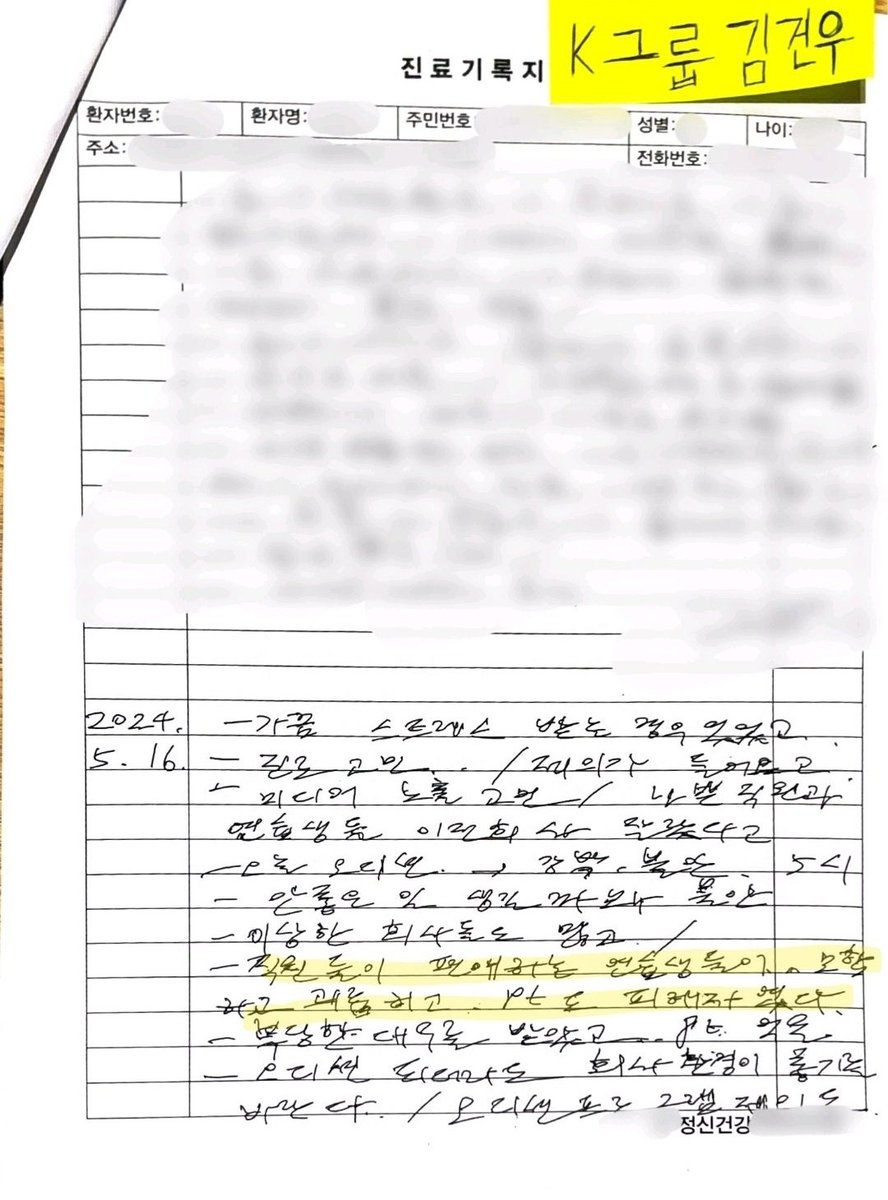 K그룹 김건우
진료기록지
환자번호: 환자명: 주민번호 성별: 나이:
주소: 전화번호:
2024. -가끔 스트레스 받는 경우 있었고.
5. 16. - 진로 고민.. / 제의가 들어오고
- 미디어 노출 고민 / 나쁜 직원과
연습생들 이전회사 많았다고
-오늘 오디션. → 강박.불안. 5시
- 안좋은 일 생길까봐 불안
-이상한 회사들도 많고. /
-직원들이 편애하는 연습생들이. 모함
하고 괴롭히고. pt도 피해자였다.
- 부당한 대우를 받았고.. pt. 억울.
- 오디션 되더라도 회사환경이 좋기를
바란다. / 오디션 프로그램 제의도
정신건강